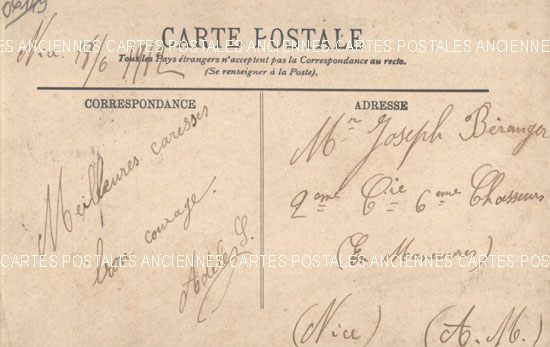 CARTE POSTALE
Tous les Pays étrangers n'acceptent pas la Correspondance au recto.
(Se renseigner à la Poste).
Nice 18/6
CORRESPONDANCE
Meilleures caresses
bon courage.
Adèle S.
ADRESSE
Mr Joseph Béranger
2eme Cie 6eme Chasseurs
(En Manœuvres)
(Nice) (A. M.)
CARTES POSTALES ANCIENNES CARTES POSTALES ANCIENNES CARTES POSTALES ANCIENNES
CARTES POSTALES ANCIENNES CARTES POSTALES ANCIENNES CARTES POSTALES ANCIENNES